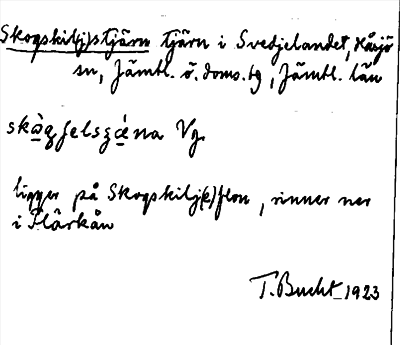 Skogskilj(s)tjärn tjärn i Svedjelandet, Håsjö
sn, Jämtl. ö. doms. tg, Jämtl. län
Vg.
ligger på Skogskilj(e)flon, rinner ner
i Flärkån
T. Bucht 1923